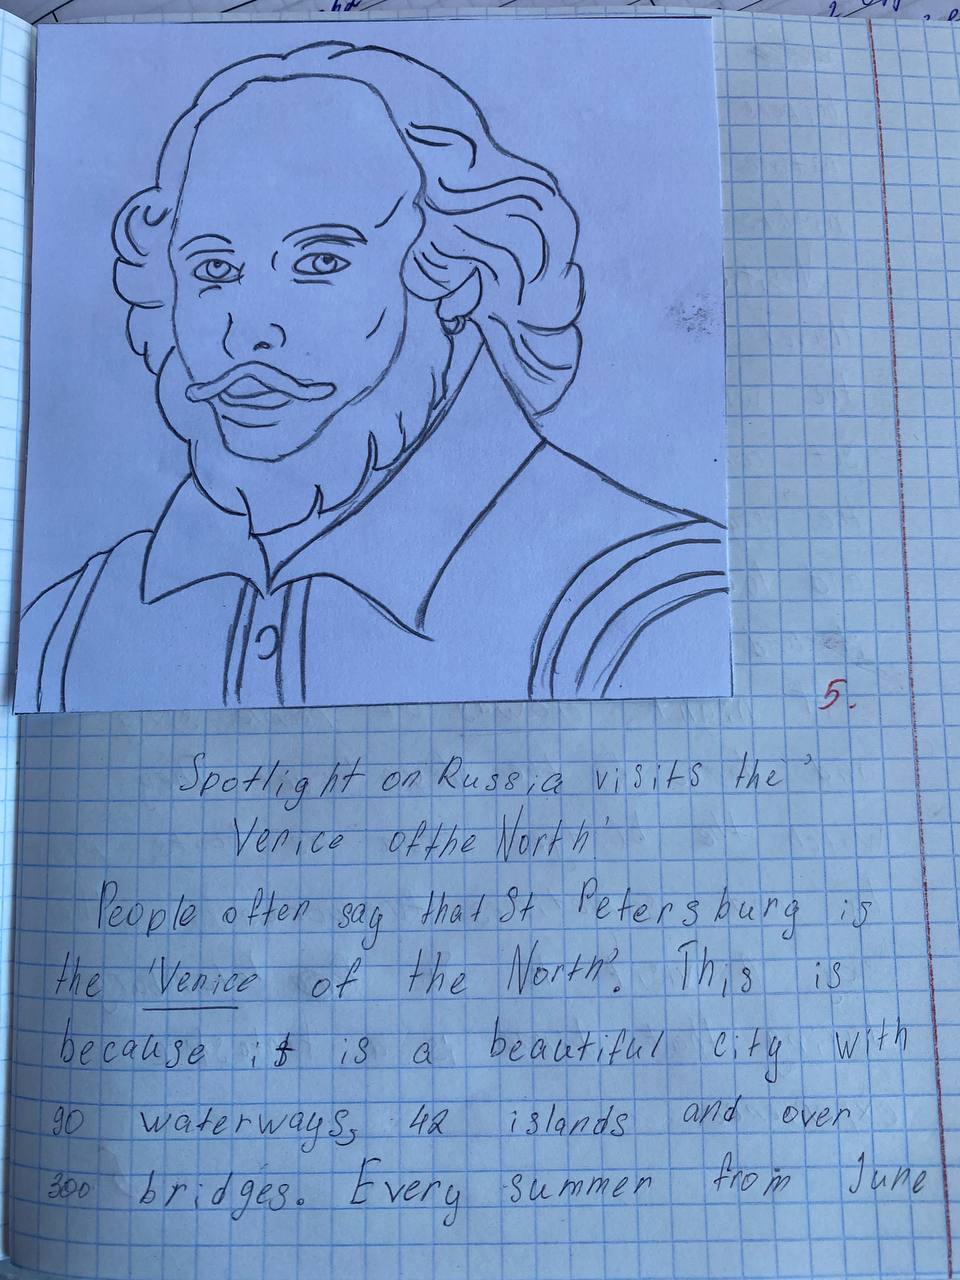 5.
Spotlight on Russia visits the '
Venice of the North'
People often say that St Petersburg is
the 'Venice of the North'. This is
because it is a beautiful city with
90 waterways, 42 islands and over
300 bridges. Every summer from June